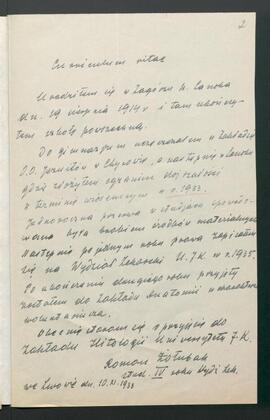 2
Curriculum vitae
Urodziłem się w Zagórzu k. Sanoka
dn. 19 sierpnia 1914 r. i tam ukończy-
łem szkołę powszechną.
Do gimnazjum uczęszczałem w Zakładzie
O.O. Jezuitów w Chyrowie, a następnie w Sanoku
gdzie złożyłem egzamin dojrzałości
w terminie w r. 1933.
Jednoroczna przerwa w studjach spowodo-
wana była brakiem środków materialnych
Następnie po jednym roku prawa zapisałem
się na Wydział Lekarski U.J.K. w r. 1935.
Po ukończeniu drugiego roku przyjęty
zostałem do Zakładu Anatomii w charakterze
wolontariusza.
Obecnie staram się o przyjęcie do
Zakładu Histologii Uniwersytetu J.K.
Roman
stud. IV roku Wydz. Lek.
we Lwowie dn. 10.XI.1938